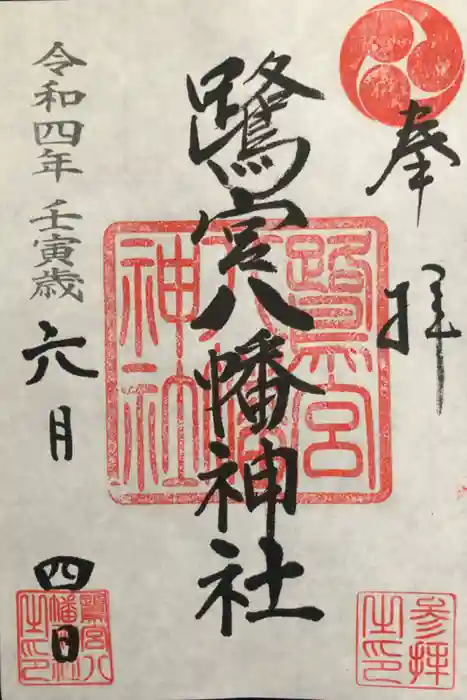 奉拝
鷺宮八幡神社
令和四年 壬寅歳 六月 四日
鷺宮八幡神社
参拝之印
鷺宮八幡神社之印